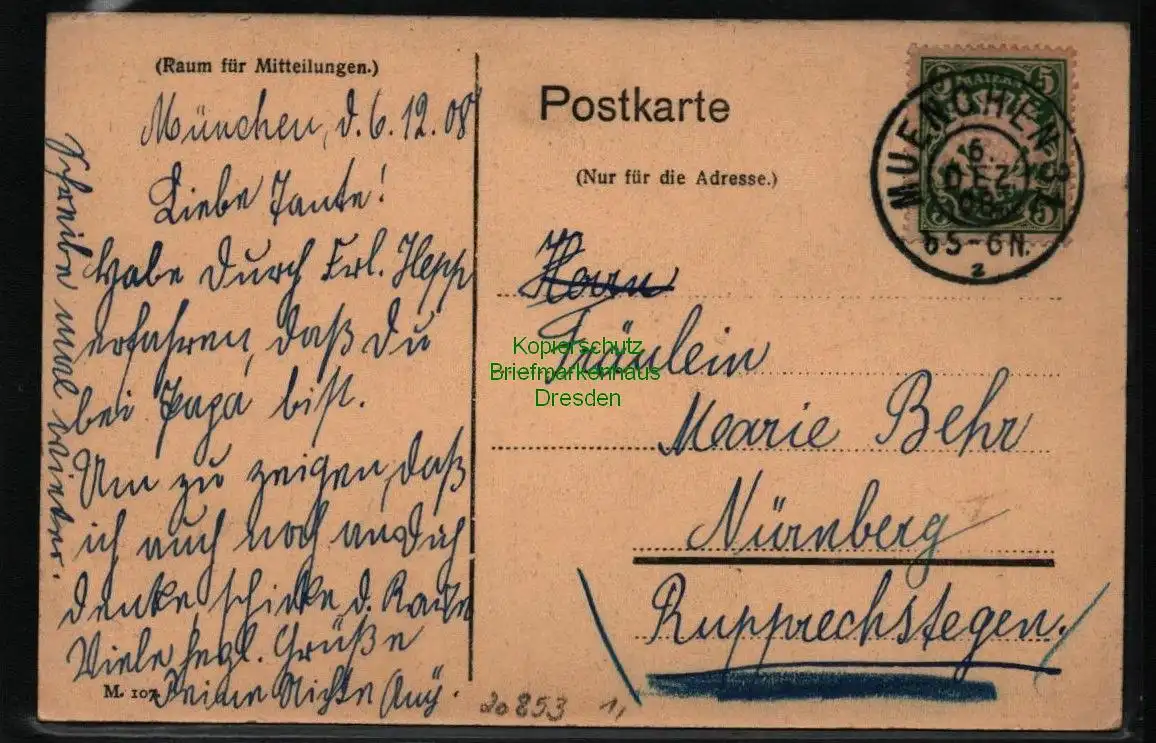 (Raum für Mitteilungen.)
München, d. 6.12.08
Liebe Tante!
Habe durch Frl. Hepp
erfahren, daß du
bei Papa bist.
Um zu zeigen, daß
ich auch noch an Dich
denke, schicke d. Karte
Viele hrzl. Grüße
Deine Nichte
Schreibe mal wieder.
M. 107
Postkarte
(Nur für die Adresse.)
5 5
MUENCHEN
6.
DEZ
08
5-6N.
2
5
Herrn
Fräulein
Marie Behr
Nürnberg
Rupprechstegen.
Kopierschutz
Briefmarkenhaus
Dresden
20853 1,